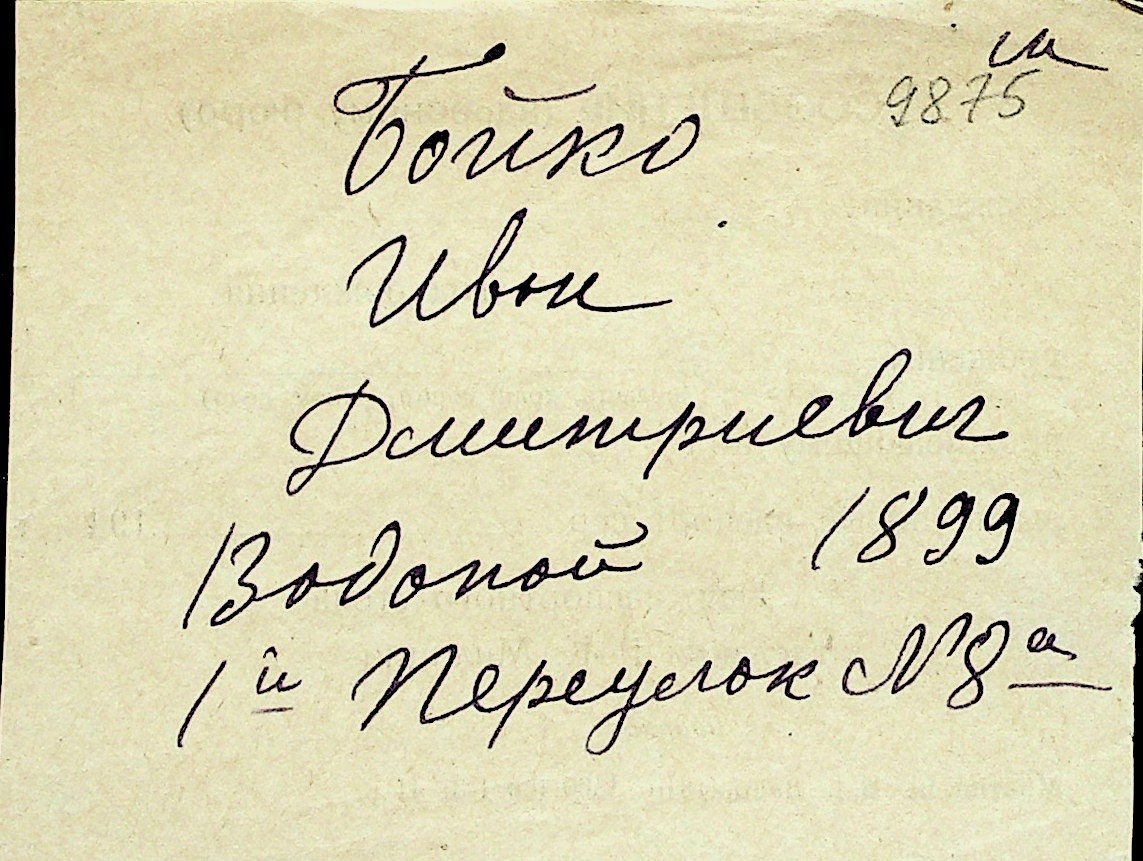 9875
Бойко
Иван
Дмитриевич
Водопой 1899
1й Переулок N8а